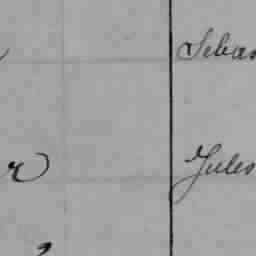 Sebas
r Jules